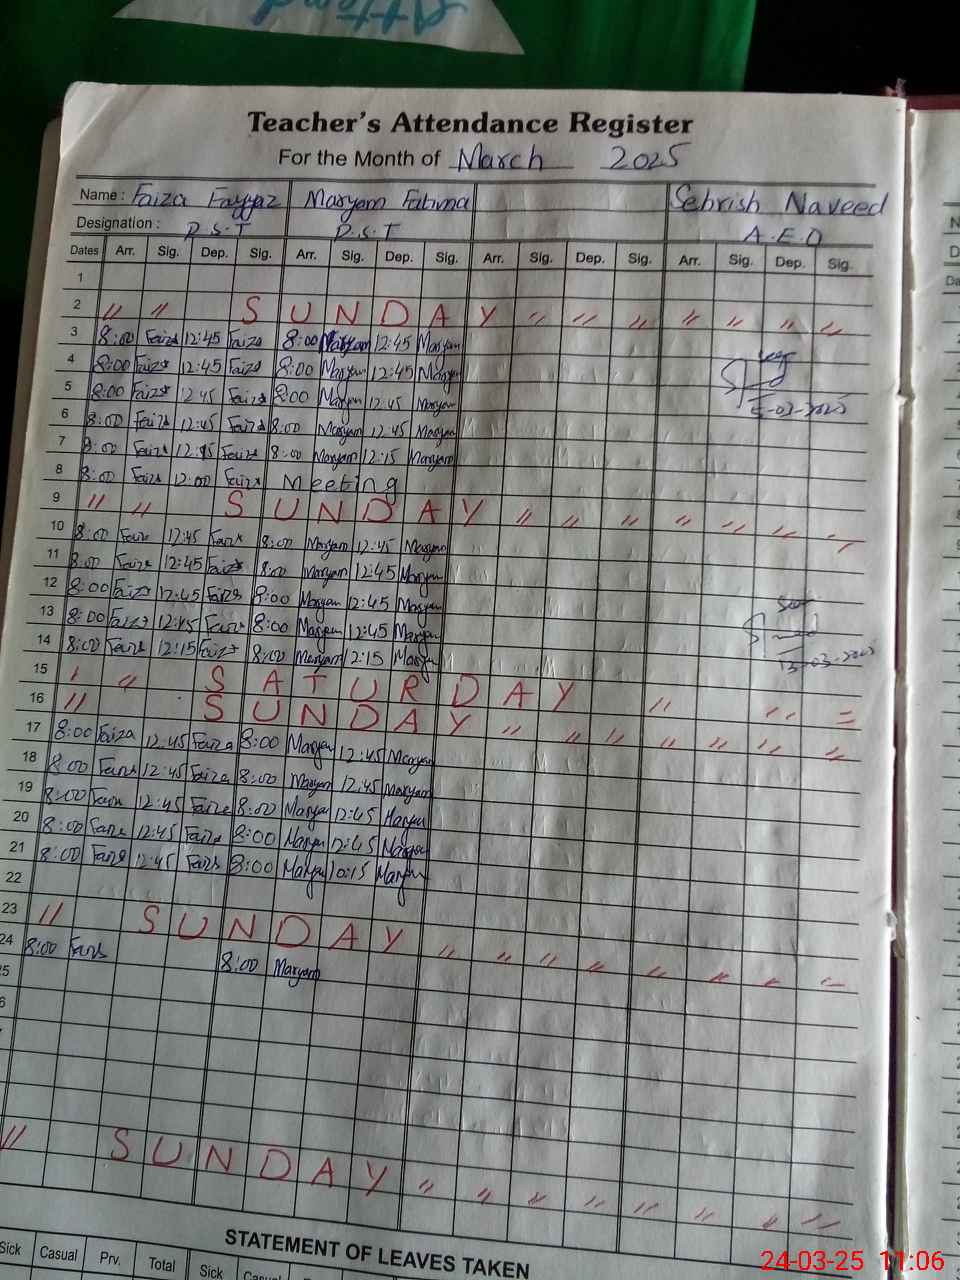 Teacher's Attendance Register
For the Month of March 2025
Name : Faiza Fayyaz Maryam Fatima Sehrish Naveed
Designation : P.S.T P.S.T A.E.O
Dates Arr. Sig. Dep. Sig. Arr. Sig. Dep. Sig. Arr. Sig. Dep. Sig. Arr. Sig. Dep. Sig.
1
2 " " S U N D A Y " " " " " " "
3 8:00 Faiza 12:45 Faiza 8:00 Maryam 12:45 Maryam
4 8:00 Faiza 12:45 Faiza 8:00 Maryam 12:45 Maryam
5 8:00 Faiza 12:45 Faiza 8:00 Maryam 12:45 Maryam
6 8:00 Faiza 12:45 Faiza 8:00 Maryam 12:45 Maryam
7 8:00 Faiza 12:15 Faiza 8:00 Maryam 12:15 Maryam
8 8:00 Faiza 12:00 Faiza Meeting
9 " " S U N D A Y " " " " " " "
10 8:00 Faiza 12:45 Faiza 8:00 Maryam 12:45 Maryam
11 8:00 Faiza 12:45 Faiza 8:00 Maryam 12:45 Maryam
12 8:00 Faiza 12:45 Faiza 8:00 Maryam 12:45 Maryam
13 8:00 Faiza 12:45 Faiza 8:00 Maryam 12:45 Maryam
13-03-2025
14 8:00 Faiza 12:15 Faiza 8:00 Maryam 12:15 Maryam
15 " " S A T U R D A Y " " "
16 " S U N D A Y " " " " " " "
17 8:00 Faiza 12:45 Faiza 8:00 Maryam 12:45 Maryam
18 8:00 Faiza 12:45 Faiza 8:00 Maryam 12:45 Maryam
19 8:00 Faiza 12:45 Faiza 8:00 Maryam 12:45 Maryam
20 8:00 Faiza 12:45 Faiza 8:00 Maryam 12:45 Maryam
21 8:00 Faiza 12:45 Faiza 8:00 Maryam 10:15 Maryam
22
23 " S U N D A Y " " " " " " " "
24 8:00 Faiza 8:00 Maryam
5
6
" S U N D A Y " " " " " " " "
STATEMENT OF LEAVES TAKEN
Sick Casual Prv. Total Sick
24-03-25 11:06